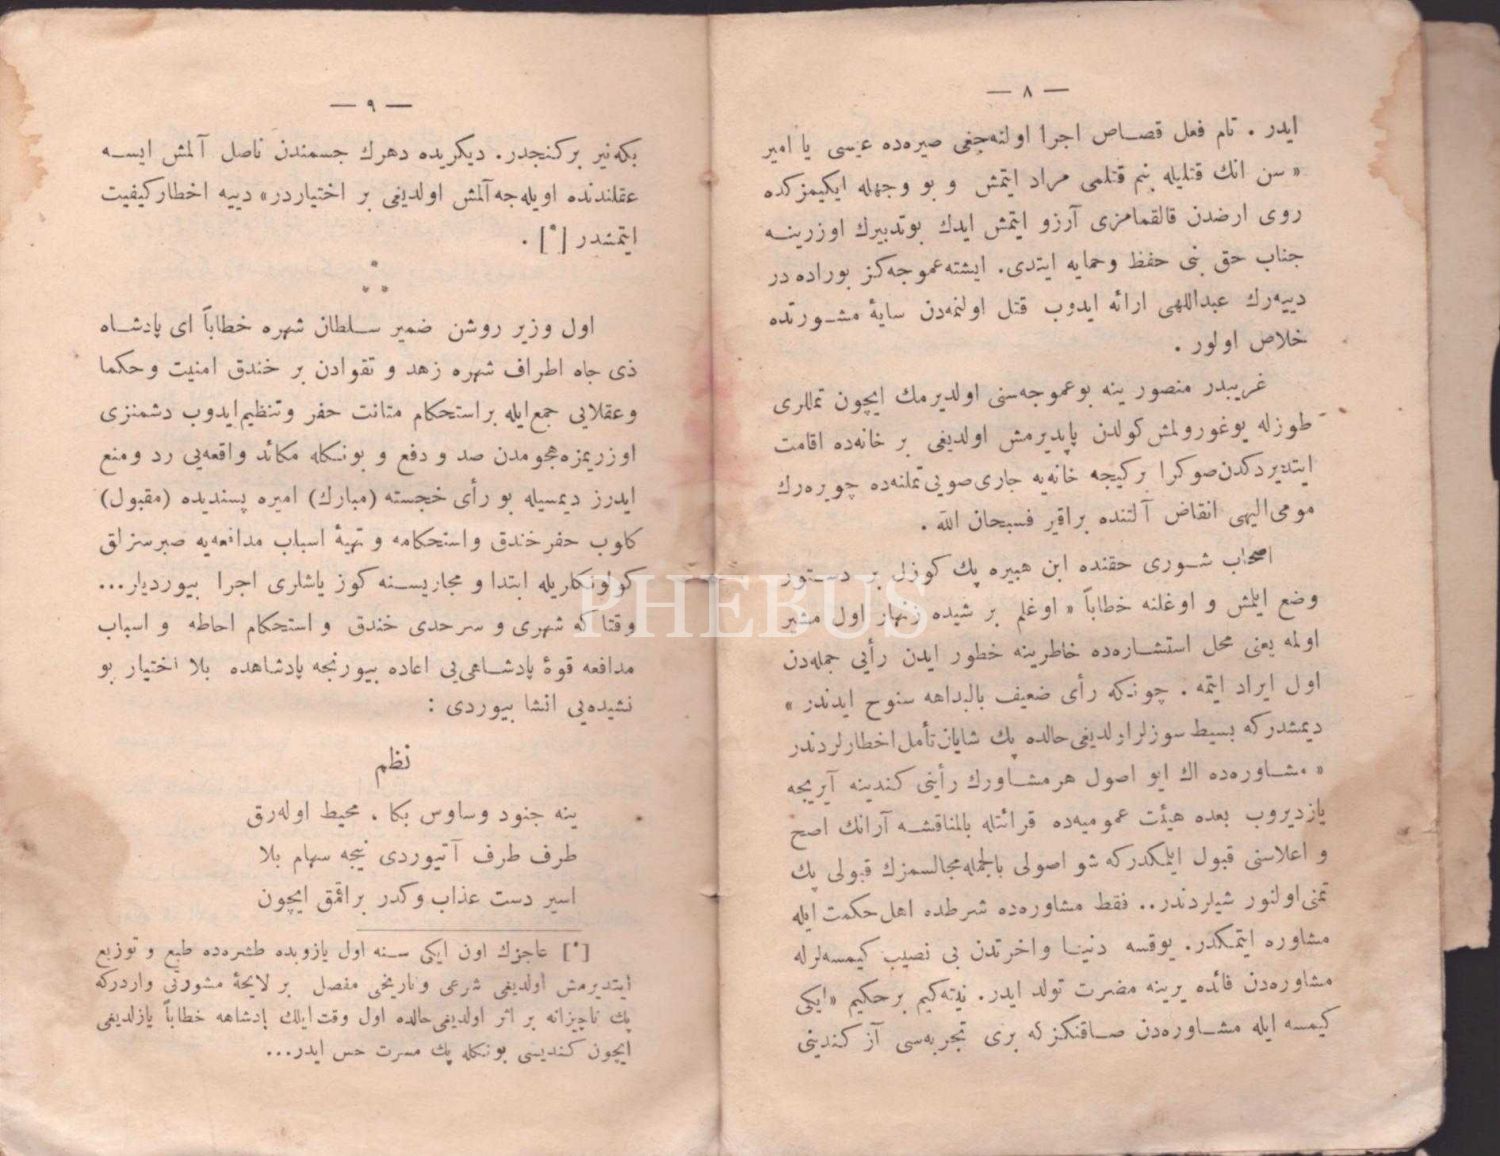 — ٨ —
ایدر . تام فعل قصاص اجرا اولنه‌جغی صیره‌ده عیسی یا امیر
« سن انك قتلیله بنم قتلمی مراد ایتمش و بو وجهله ایكیمزكده
روی ارضدن قالقمامزی آرزو ایتمش ایدك بوتدبیرك اوزرینه
جناب حق بنی حفظ و حمایه ایتدی. ایشته عموجه‌كز بوراده در
دییه‌رك عبداللهی ارائه ایدوب قتل اولنمه‌دن سایهٔ مشورتده
خلاص اولور .
غریبدر منصور ینه بوعموجه‌سنی اولدیرمك ایچون تمللری
طوزله یوغورولمش كولدن یاپدیرمش اولدیغی بر خانه‌ده اقامت
ایتدیردكدن صوكرا بركیجه خانه‌یه جاری صویی تملنه‌ده چویره‌رك
مومی الیهی انقاض آلتنده براقیر فسبحان الله .
اصحاب شوری حقنده ابن هبیره پك كوزل بر دستور
وضع ایلمش و اوغلنه خطاباً « اوغلم بر شیده زنهار اول مشیر
اولمه یعنی محل استشاره‌ده خاطرینه خطور ایدن رأیی جمله‌دن
اول ایراد ایتمه . چونكه رأی ضعیف بالبداهه سنوح ایدندر »
دیمشدركه بسیط سوزلر اولدیغی حالده پك شایان تأمل اخطارلردندر
« مشاوره‌ده اك ایو اصول هر مشاورك رأینی كندینه آیریجه
یازدیروب بعده هیئت عمومیه‌ده قرائتله بالمناقشه آرانك اصح
و اعلاسنی قبول ایلمكدركه شو اصولی بالجمله مجالسمزك قبولی پك
تمنی اولنور شیلردندر.. فقط مشاوره‌ده شرطده اهل حكمت ایله
مشاوره ایتمكدر. یوقسه دنیا و اخرتدن بی نصیب كیمسه‌لرله
مشاوره‌دن فائده یرینه مضرت تولد ایدر. نیته‌كیم بر حكیم «ایكی
كیمسه ایله مشاوره‌دن صاقنكزكه بری تجربه‌سی آز كندینی
— ٩ —
بكه‌نیر بر كنجدر. دیكریده دهرك جسمندن ناصل آلمش ایسه
عقلندنده اویله‌جه آلمش اولدیغی بر اختیاردر» دییه اخطار كیفیت
ایتمشدر [*] .
* * *
اول وزیر روشن ضمیر سلطان شهره خطاباً ای پادشاه
ذی جاه اطراف شهره زهد و تقوادن بر خندق امنیت و حكما
و عقلایی جمع ایله بر استحكام متانت حفر و تنظیم ایدوب دشمنزی
اوزریمزه هجومدن صد و دفع و بونكله مكائد واقعه‌یی رد و منع
ایدرز دیمسیله بو رأی خجسته (مبارك) امیره پسندیده (مقبول)
كلوب حفر خندق و استحكامه و تهیهٔ اسباب مدافعه‌یه صبرسزلق
كولونكلریله ابتدا و مجاریسنه كوز یاشلری اجرا بیوردیلر...
وقتا كه شهری و سرحدی خندق و استحكام احاطه و اسباب
مدافعه قوهٔ پادشاهی‌یی اعاده بیورنجه پادشاهده بلا اختیار بو
نشیده‌یی انشا بیوردی :
نظم
ینه جنود وساوس بكا . محیط اوله‌رق
طرف طرف آتیوردی نیجه سهام بلا
اسیر دست عذاب و كدر براقمق ایچون
[*] عاجزك اون ایكی سنه اول یازوبده طشره‌ده طبع و توزیع
ایتدیرمش اولدیغی شرعی و تاریخی مفصل بر لایحهٔ مشورتی واردركه
پك ناچیزانه بر اثر اولدیغی حالده اول وقت ایلك پادشاهه خطاباً یازلدیغی
ایچون كندیسی بونكله پك مسرت حس ایدر...
PHEBUS